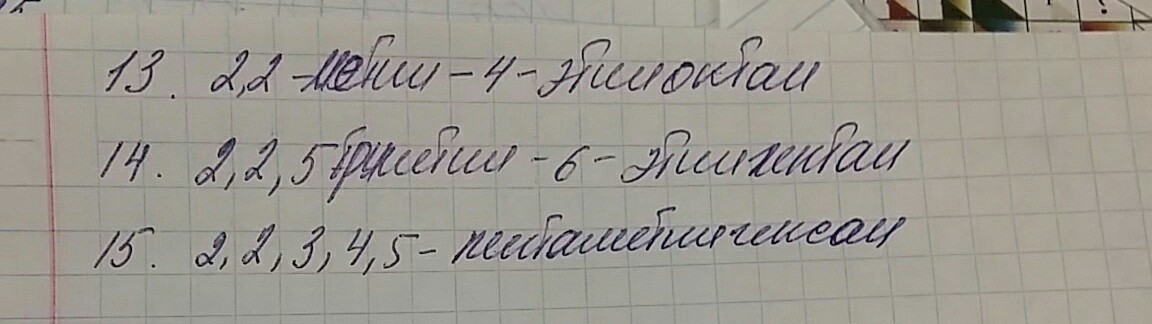 13. 2,2-метил-4-этилоктан
14. 2,2,5 триметил-6-этилгептан
15. 2,2,3,4,5-пентаметилгексан